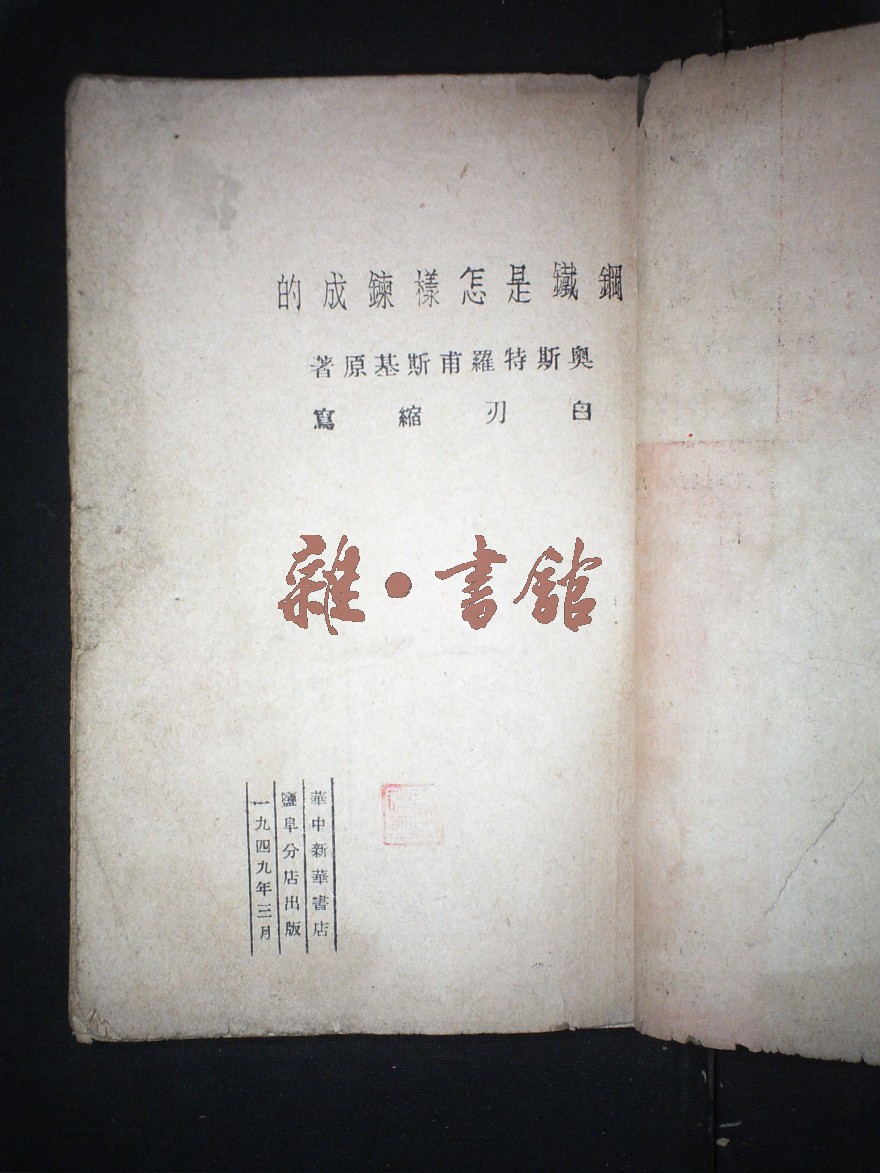 鋼鐵是怎樣鍊成的
奧斯特羅甫斯基原著
白刃縮寫
雜·書館
華中新華書店
鹽阜分店出版
一九四九年三月